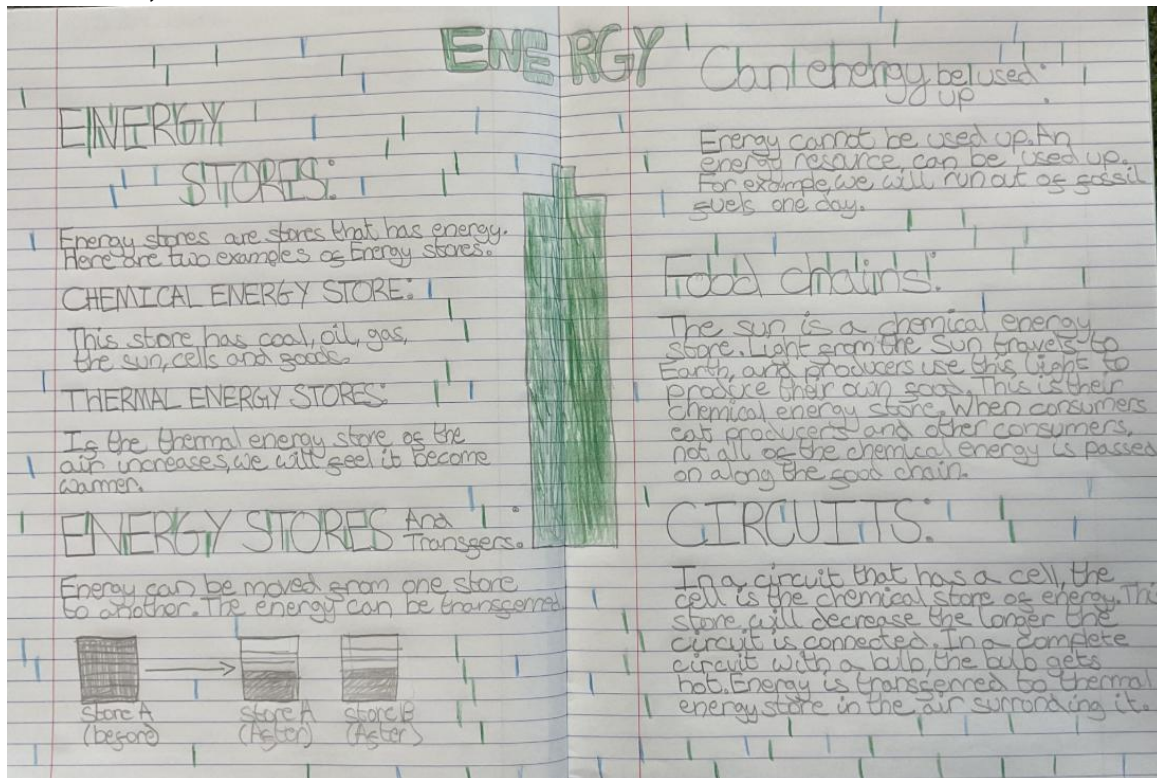 ENERGY
ENERGY
STORES:
Energy stores are stores that has energy.
Here are two examples of Energy stores.
CHEMICAL ENERGY STORE:
This store has coal, oil, gas,
the sun, cells and foods.
THERMAL ENERGY STORES:
If the thermal energy store of the
air increases, we will feel it become
warmer.
ENERGY STORES And
Transfers.
Energy can be moved from one store
to another. The energy can be transferred
store A
(before)
store A
(After)
store B
(After)
Can energy be used
up
Energy cannot be used up. An
energy resource can be used up.
For example, we will run out of fossil
fuels one day.
Food chains:
The sun is a chemical energy
store. Light from the Sun travels to
Earth, and producers use this light to
produce their own food. This is their
chemical energy store. When consumers
eat producers and other consumers,
not all of the chemical energy is passed
on along the food chain.
CIRCUITS:
In a circuit that has a cell, the
cell is the chemical store of energy. This
store will decrease the longer the
circuit is connected. In a complete
circuit with a bulb, the bulb gets
hot. Energy is transferred to thermal
energy store in the air surronding it.